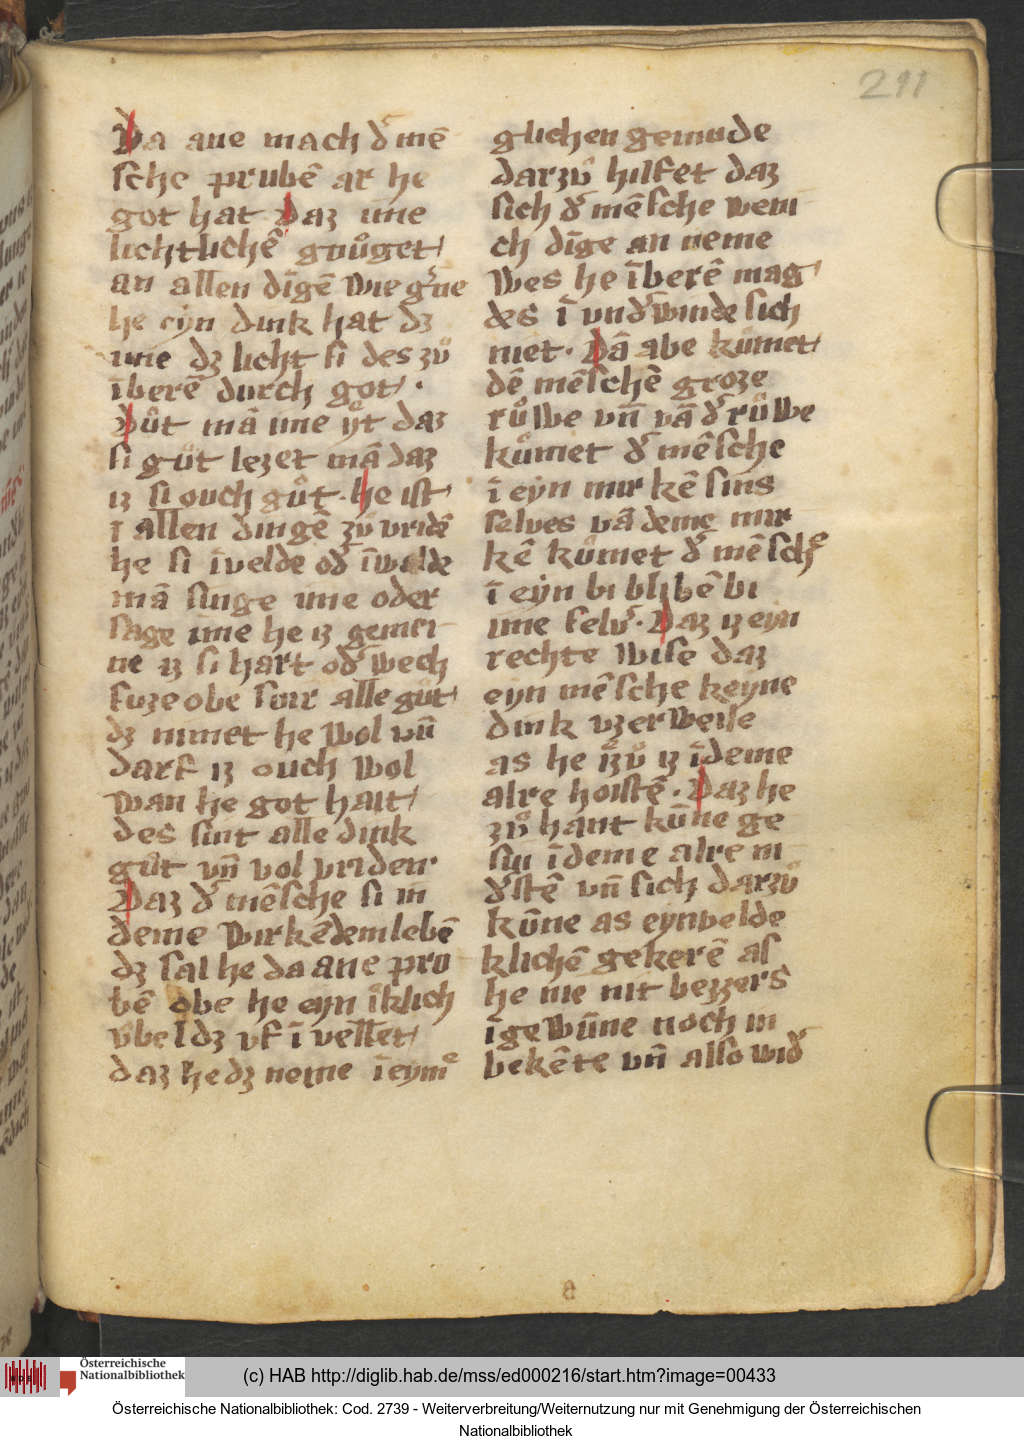 211
Da ane mach d᷑ mē
sche prubē ar he
got hat Daz ime
lichtlichē gnůget
an allen dīgē wie g᷑ne
he eyn dink hat dz
ime dz licht si des zů
īberē durch got ·
Důt mā ime ẙt daz
si gůt lezet mā daz
iz si ouch gůt · he ist
ī allen dingē zů vridē
he si ī velde od᷑ ī walde
mā singe ime oder
sage ime he iz gemei
ne iz si hart od᷑ wech
suze obe sur alle gůt
dz nimet he wol vn̄
darf iz ouch wol
wan he got hait
des sint alle dink
gůt vn̄ vol vriden ·
Daz d᷑ mēsche si in
deme wirkēdem lebē
dz sal he da ane pro
bē obe he eyn īklich
v̊bel dz vf ī vellet
daz he dz neme ī eymͤ
glichen gemude
darzů hilfet daz
sich d᷑ mēsche weni
ch dīge an neme
wes he īberē mag
des ī vnd᷑winde sich
niet · Dā abe kůmet
dē mēschē groze
růwe vn̄ vā d᷑ růwe
kůmet d᷑ mēsche
ī eyn mirkē sins
selues vā deme mir
kē kůmet d᷑ mēschͤ
ī eyn bi blibē bi
ime selu᷑ · Daz iz eyn
rechte wise daz
eyn mēsche keyne
dink vzerweile
as he īzů iz īdeme
alre hoistē · Daz he
zů hant kūne ge
sin īdeme alre ni
d᷑stē vn̄ sich darzů
kūne as eynvelde
klichē gekerē as
he nie nit bezzers
īgewūne noch in
bekēte vn̄ also wid᷑
8
Österreichische
Nationalbibliothek
(c) HAB http://diglib.hab.de/mss/ed000216/start.htm?image=00433
Österreichische Nationalbibliothek: Cod. 2739 - Weiterverbreitung/Weiternutzung nur mit Genehmigung der Österreichischen
Nationalbibliothek